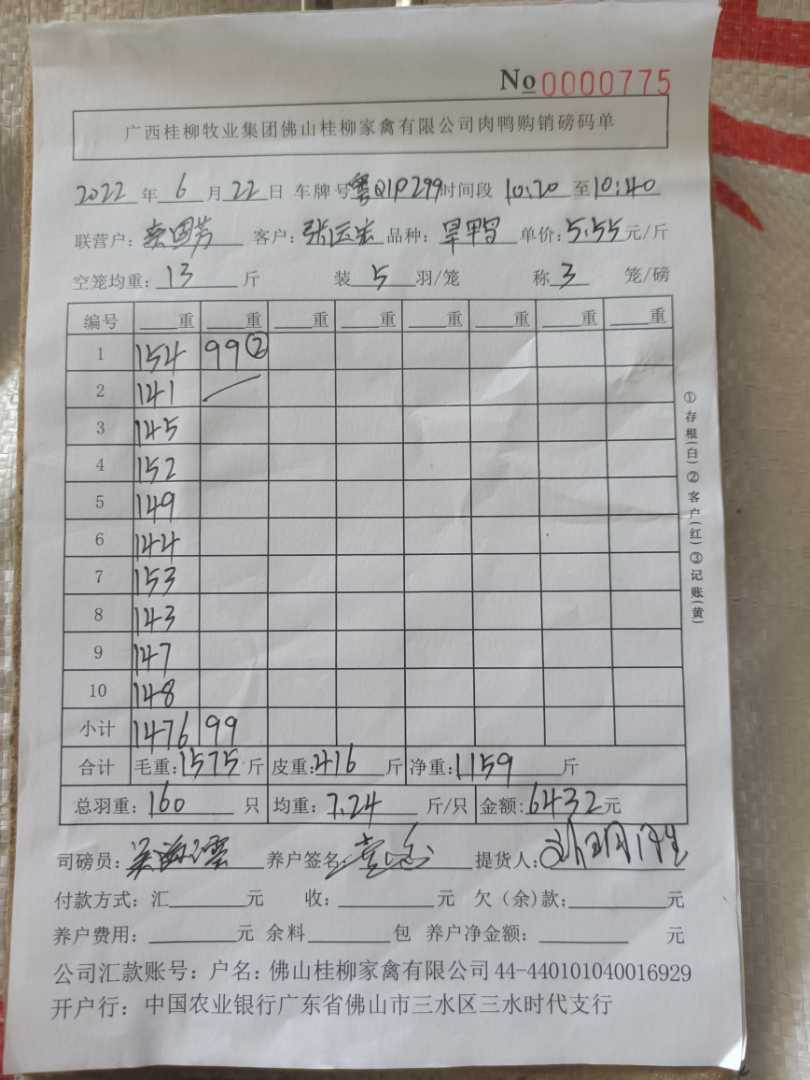 No 0000775
广西桂柳牧业集团佛山桂柳家禽有限公司肉鸭购销磅码单
2022 年 6 月 22 日 车牌号 粤Q1P299 时间段 10:20 至 10:40
联营户: 国芳 客户: 张运宏 品种: 旱鸭 单价: 5.55 元/斤
空笼均重: 13 斤 装 5 羽/笼 称 3 笼/磅
编号 重 重 重 重 重 重 重 重
1 154 99②
2 141
3 145
4 152
5 149
6 144
7 153
8 143
9 147
10 148
小计 1476 99
合计 毛重: 1575 斤 皮重: 416 斤 净重: 1159 斤
总羽重: 160 只 均重: 7.24 斤/只 金额: 6432 元
司磅员: 养户签名: 提货人:
付款方式: 汇 元 收: 元 欠(余)款: 元
养户费用: 元 余料 包 养户净金额: 元
公司汇款账号: 户名: 佛山桂柳家禽有限公司 44-440101040016929
开户行: 中国农业银行广东省佛山市三水区三水时代支行
①存根(白)②客户(红)③记账(黄)